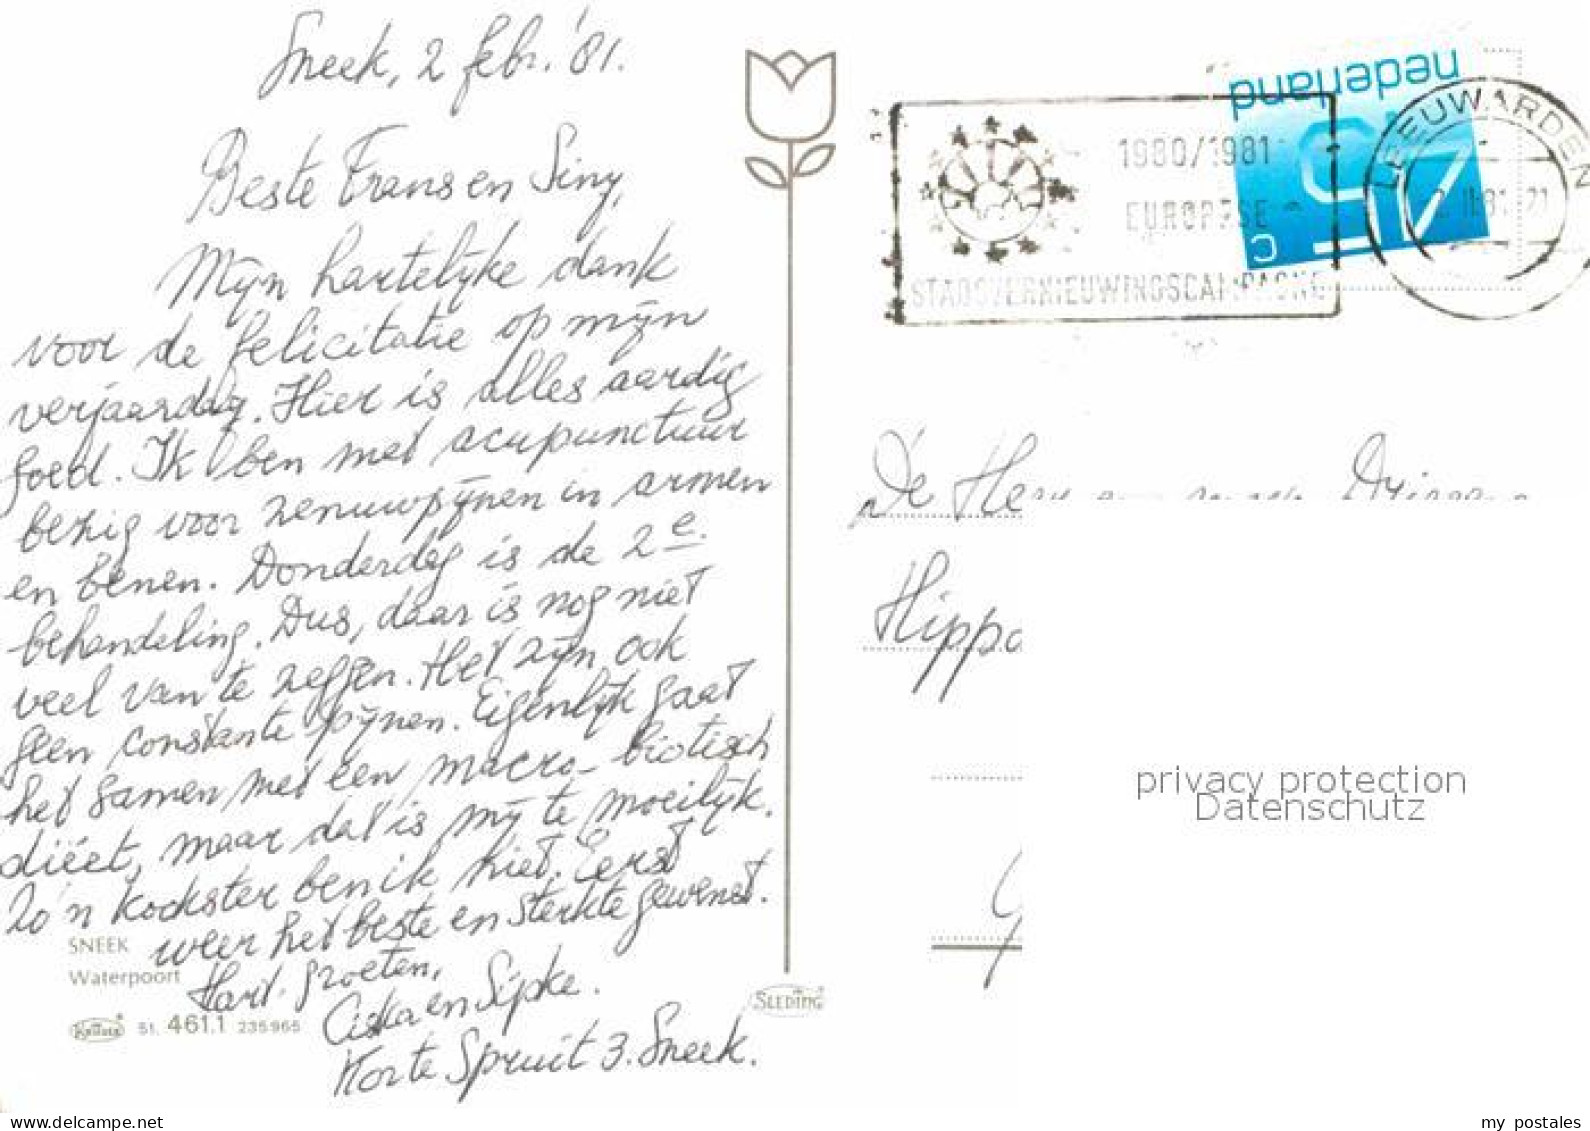 Sneek, 2 febr. '81.
Beste Frans en Siny,
Mijn hartelijke dank
voor de felicitatie op mijn
verjaardag. Hier is alles aardig
goed. Ik ben met acupunctuur
bezig voor zenuwpijnen in armen
en benen. Donderdag is de 2e.
behandeling. Dus, daar is nog niet
veel van te zeggen. Het zijn ook
geen constante pijnen. Eigenlijk gaat
het samen met een macro-biotisch
diëet, maar dat is mij te moeilijk.
Zo'n kookster ben ik niet. Eerst
weer het beste en sterkte gewenst.
Hart. groeten,
Ciska en Sipke.
Korte Spruit 3. Sneek.
SNEEK
Waterpoort
KRÜGER
51. 461.1 235965
SLEDING
nederland
45 C
1980/1981
EUROPESE
STADSVERNIEUWINGSCAMPAGNE
LEEUWARDEN
2 II 81 21
De Heer
Hippo
G
privacy protection
Datenschutz
delcampe.net
my_postales